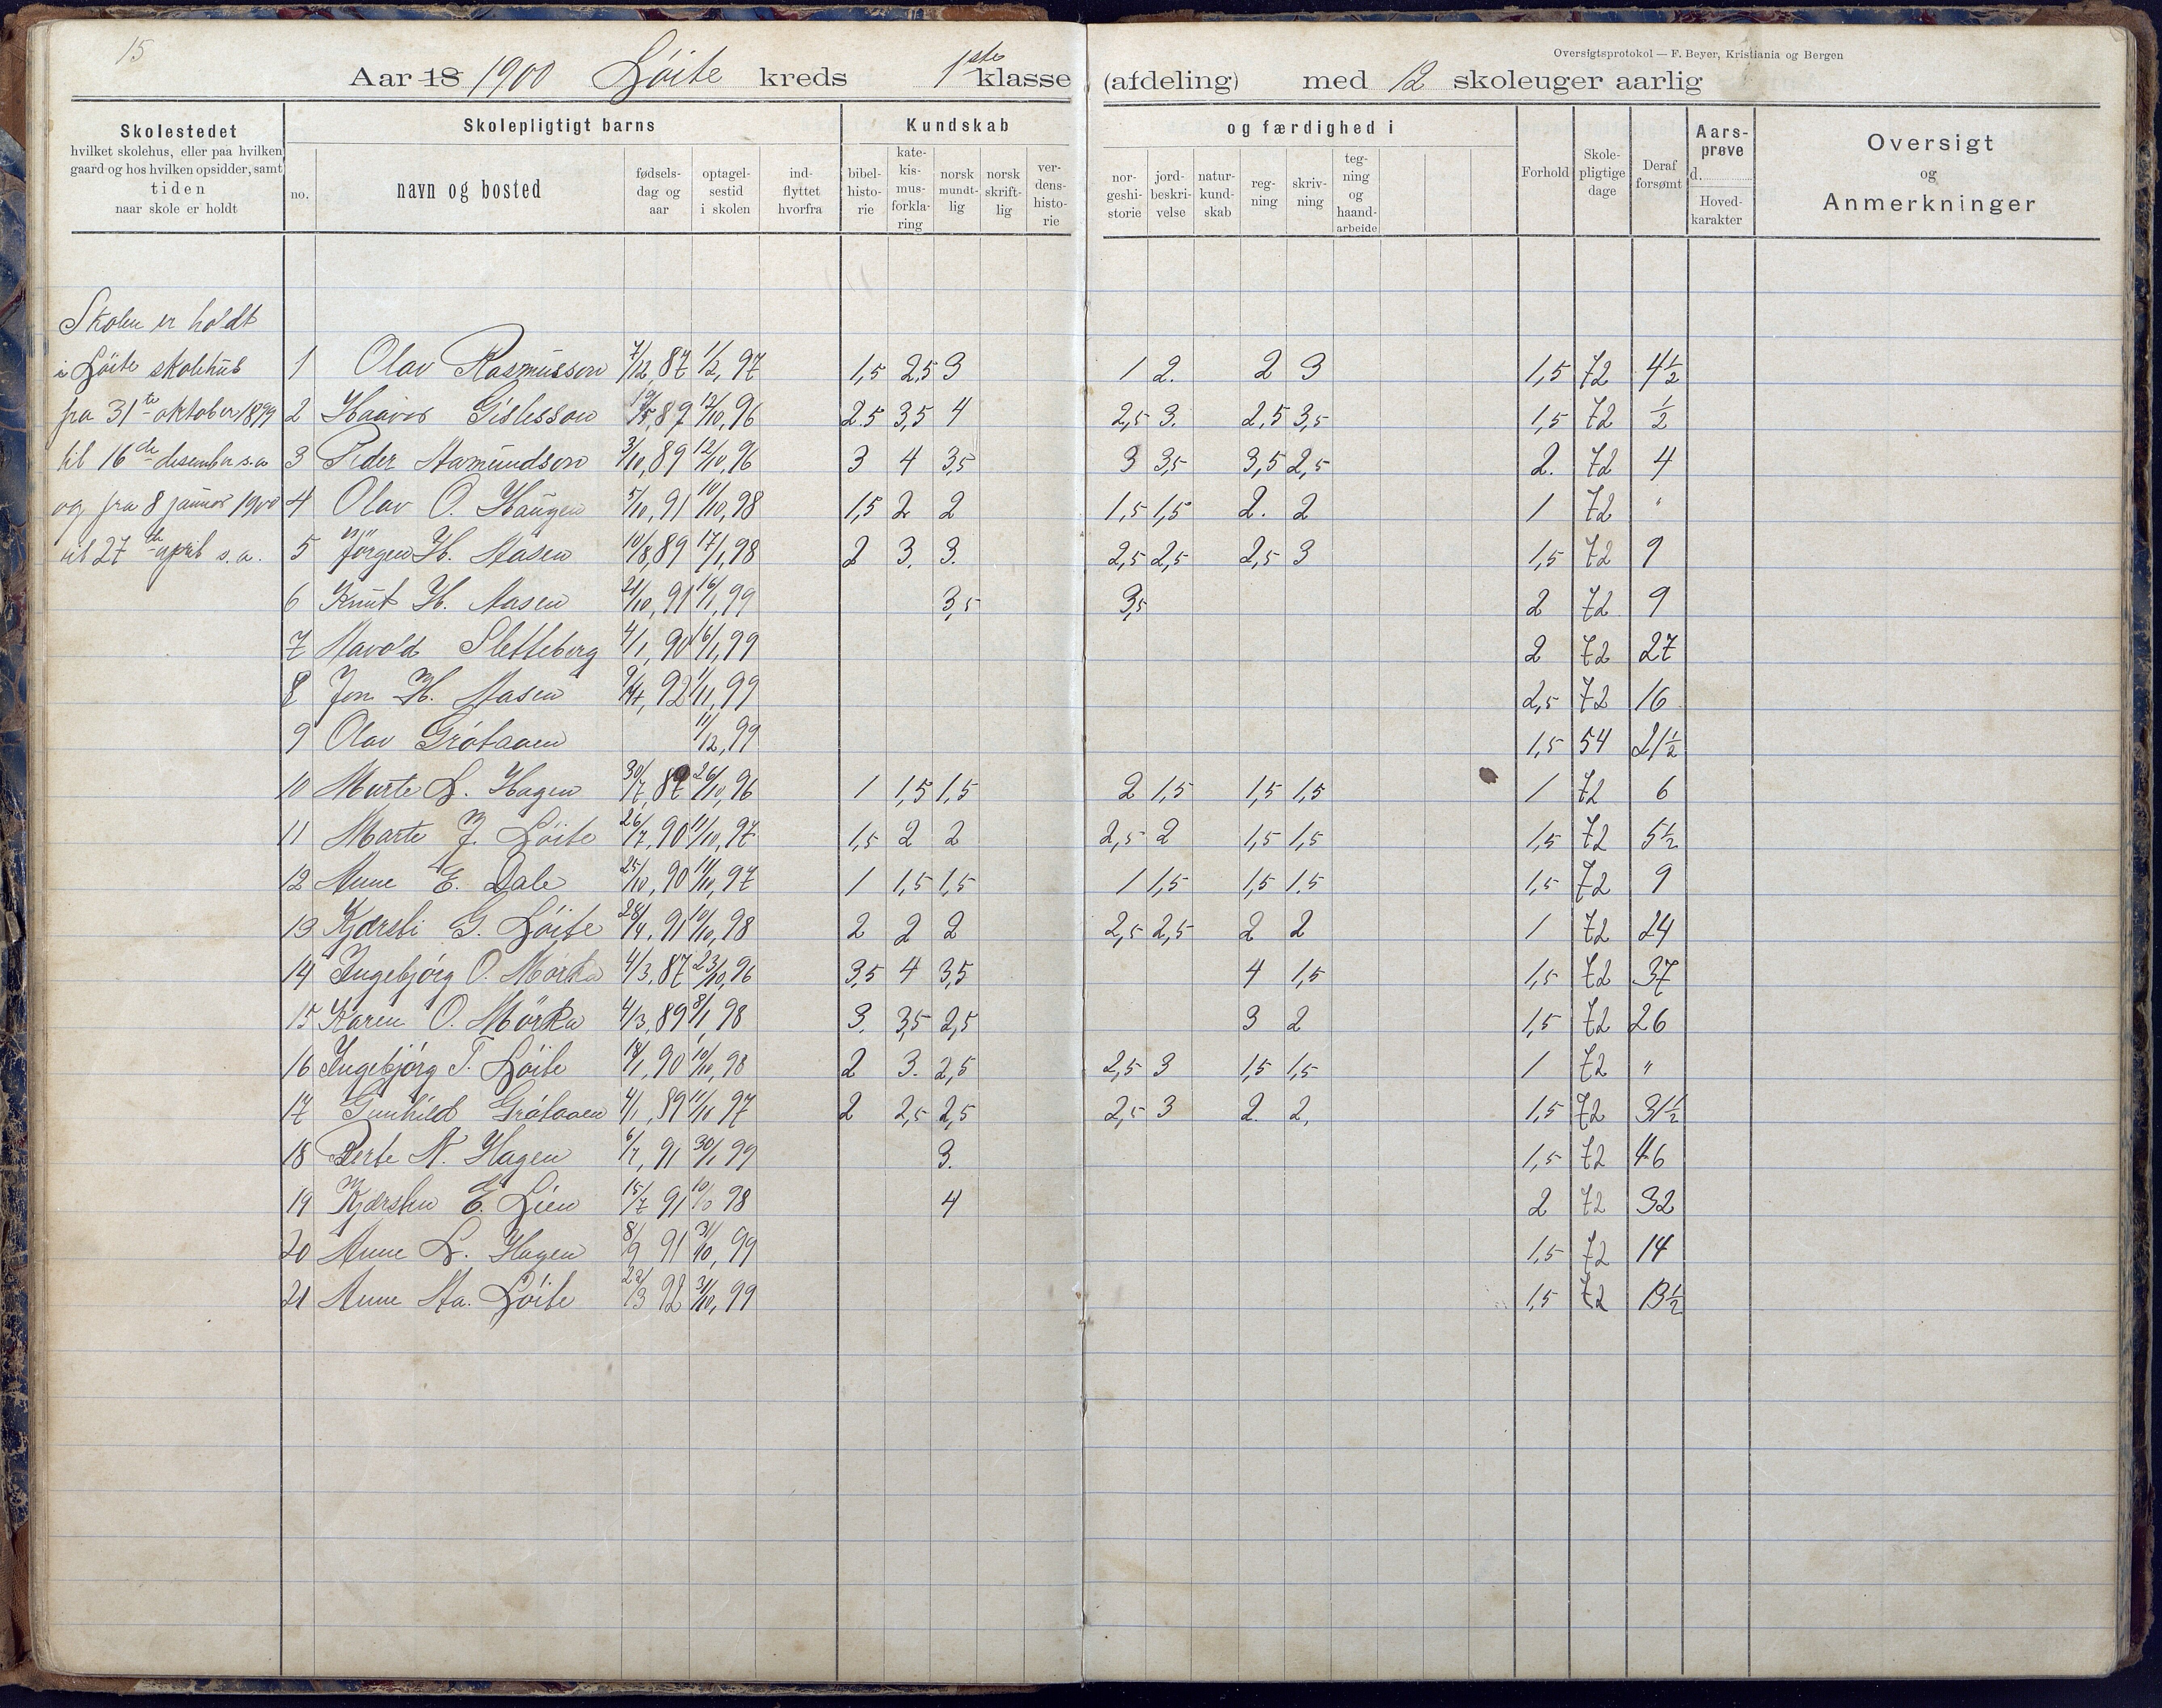 15
Oversigtsprotokol — F. Beyer, Kristiania og Bergen
Aar 18 1900 Löite kreds 1ste klasse (afdeling) med 12 skoleuger aarlig
Skolestedet
hvilket skolehus, eller paa hvilken
gaard og hos hvilken opsidder, samt
tiden
naar skole er holdt
Skolepligtigt barns
no.
navn og bosted
fødsels-
dag og
aar
optagel-
sestid
i skolen
ind-
flyttet
hvorfra
Kundskab
bibel-
histo-
rie
kate-
kis-
mus-
forkla-
ring
norsk
mundt-
lig
norsk
skrift-
lig
ver-
dens-
histo-
rie
og færdighed i
nor-
geshi-
storie
jord-
beskri-
velse
natur-
kund-
skab
reg-
ning
skriv-
ning
teg-
ning
og
haand-
arbeide
Forhold
Skole-
pligtige
dage
Deraf
forsømt
Aars-
prøve
d.
Hoved-
karakter
Oversigt
og
Anmerkninger
Skolen er holdt
i Löite skolehus
fra 31te oktober 1899
til 16de desember s.a
og fra 8 januar 1900
til 27de april s.a.
1 Olav Rasmusson 7/12, 87 1/2, 97 1,5 2,5 3 1 2. 2 3 1,5 72 4½
2 Haavor Gislesson 19/5, 87 12/10, 96 2.5 3,5 4 2,5 3. 2,5 3,5 1,5 72 ½
3 Peder Aamundson 3/10, 89 12/10, 96 3 4 3,5 3 3,5 3,5 2,5 2. 72 4
4 Olav O. Haugen 5/10, 91 10/10, 98 1,5 2 2 1,5 1,5 2. 2 1 72 "
5 Jörgen H. Aasen 10/8, 89 17/1, 98 2 3. 3. 2,5 2,5 2,5 3 1,5 72 9
6 Knut H. Aasen 21/10, 91 16/1, 99 3,5 3,5 2 72 9
7 Havold Sletteberg 4/1, 90 16/1, 99 2 72 27
8 Jon H. Aasen 92 1/11, 99 2,5 72 16
9 Olav Grötaaen 11/12, 99 1,5 54 21½
10 Marte L. Hagen 30/7, 87 26/10, 96 1 1,5 1,5 2 1,5 1,5 1,5 1 72 6
11 Marte J. Löite 26/7, 90 11/10, 97 1,5 2 2 2,5 2 1,5 1,5 1,5 72 5½
12 Anne E. Dale 25/10, 90 11/10, 97 1 1,5 1,5 1 1,5 1,5 1.5 1,5 72 9
13 Kjærsti G. Löite 28/4, 91 10/10, 98 2 2 2 2,5 2,5 2 2 1 72 24
14 Ingebjörg O. Mörka 4/3, 87 23/10, 96 3,5 4 3,5 4 1,5 1,5 72 37
15 Karen O. Mörka 4/3, 89 8/1 98 3. 3,5 2,5 3 2 1,5 72 26
16 Ingebjörg T. Löite 18/1, 90 10/10, 98 2 3. 2,5 2,5 3 1,5 1,5 1 72 "
17 Gunhild Grötaaen 4/1, 89 11/10 97 2 2,5 2,5 2,5 3 2. 2, 1,5 72 31½
18 Berte N. Hagen 6/7, 91 30/1 99 3. 1,5 72 46
19 Kjersten E. Lien 15/7 91 10/10 98 4 2 72 32
20 Anne L. Hagen 8/9 91 31/10, 99 1,5 72 14
21 Anne Aa. Löite 22/3 92 31/10, 99 1,5 72 13½